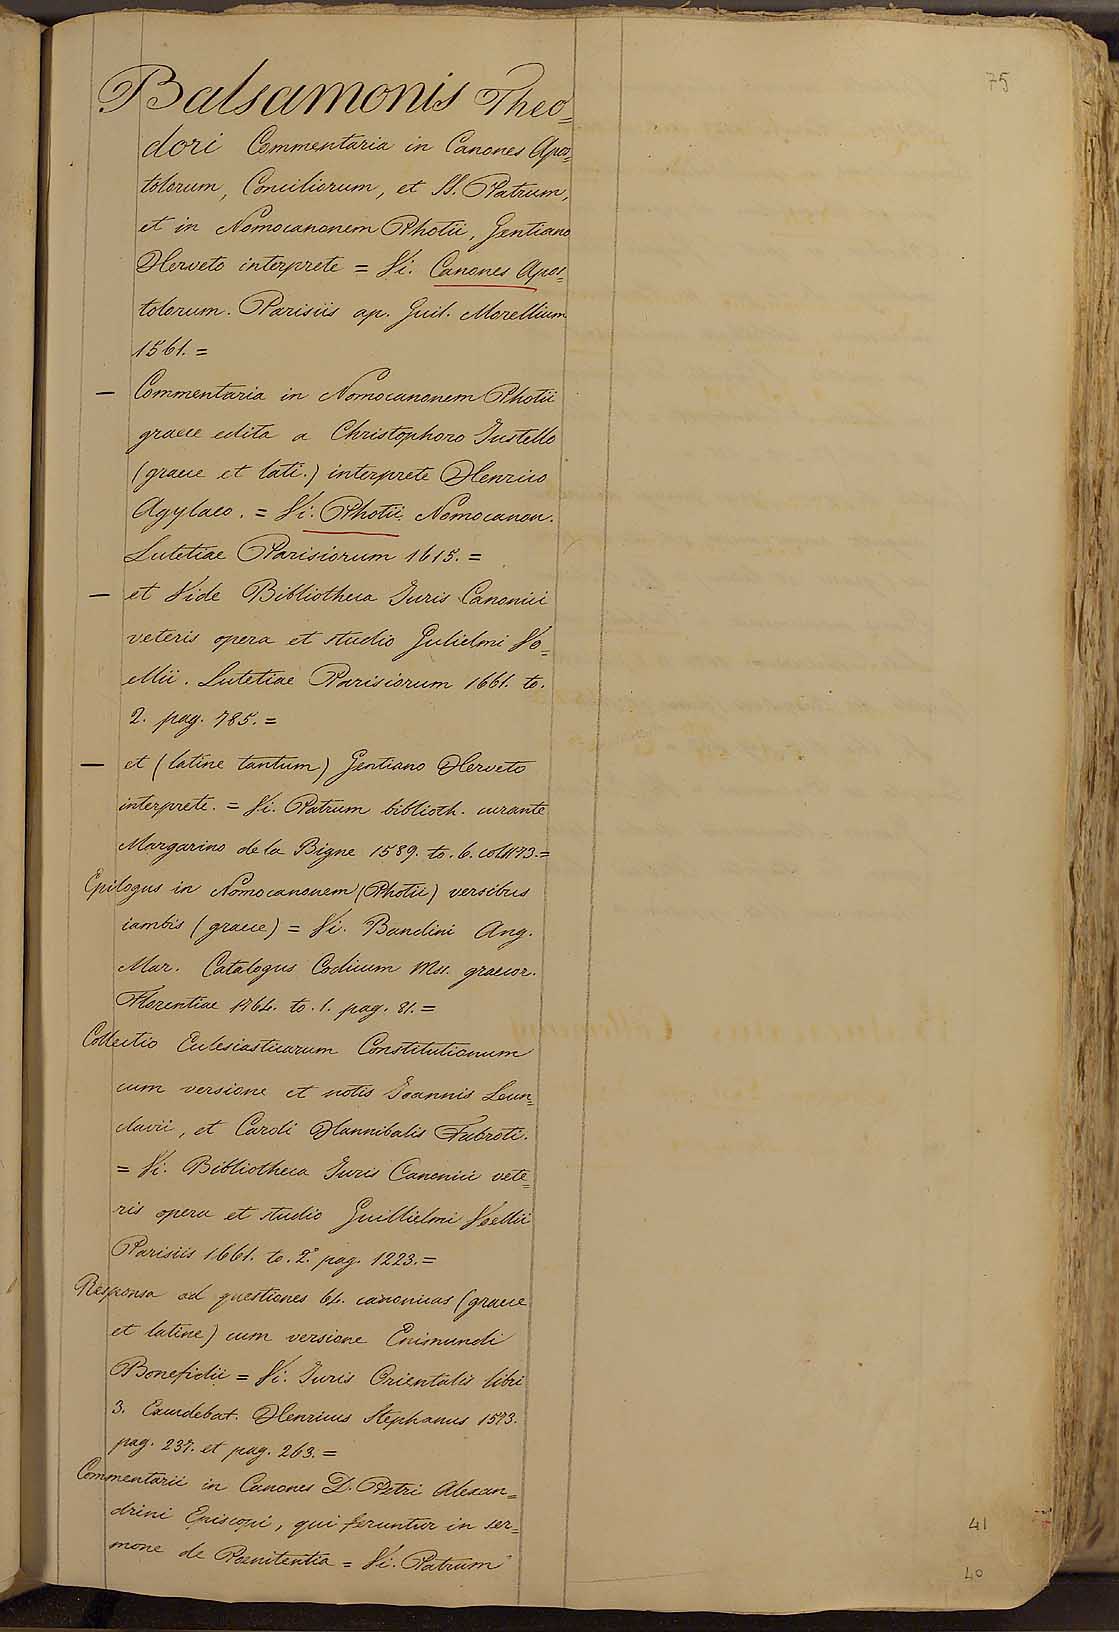 75
Balsamonis Theo=
dori Commentaria in Canones Apos=
tolorum, Conciliorum, et SS. Patrum,
et in Nomocanonem Photii, Gentiano
Herveto interprete = Vi. Canones Apos=
tolorum. Parisiis ap. Guil. Morellium
1561. =
— Commentaria in Nomocanonem Photii
graece edita a Christophoro Justello
(graece et lati.) interprete Henrico
Agylaeo. = Vi. Photii Nomocanon.
Lutetiae Parisiorum 1615. =
— et Vide Bibliotheca Juris Canonici
veteris opera et studio Gulielmi Vo=
ellii. Lutetiae Parisiorum 1661. to.
2. pag. 785. =
— et (latine tantum) Gentiano Herveto
interprete. = Vi. Patrum biblioth. curante
Margarino de la Bigne 1589. to. 6. col. 1173. =
Epilogus in Nomocanonem (Photii) versibus
iambis (graece) = Vi. Bandini Ang.
Mar. Catalogus Codicum Mss. graecor.
Florentiae 1764. to. 1. pag. 81. =
Collectio Eclesiasticarum Constitutionum
cum versione et notis Joannis Leun=
clavii, et Caroli Hannibalis Fabroti.
= Vi. Bibliotheca Juris Canonici vete=
ris opera et studio Guillielmi Voellii
Parisiis 1661. to. 2.º pag. 1223. =
Responsa ad questiones 64. canonicas (graece
et latine) cum versione Enimundi
Bonefidii = Vi. Juris Orientalis libri
3. Excudebat. Henricus Stephanus 1573.
pag. 237. et pag. 263. =
Commentarii in Canones D. Petri Alexan=
drini Episcopi, qui feruntur in ser=
mone de Poenitentia = Vi. Patrum
41
40